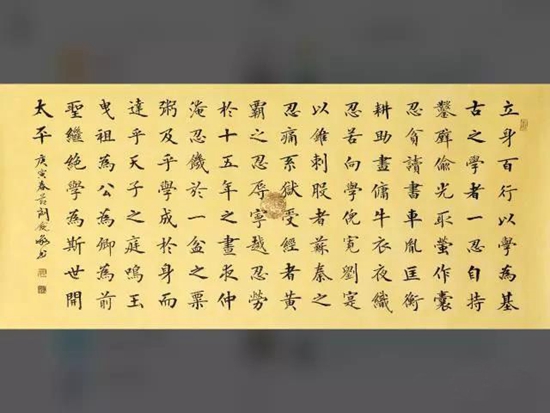 立身百行以學為基
古之學者一忍自持
鑿壁偷光取螢作囊
忍貧讀書車胤匡衡
耕助畫傭牛衣夜織
忍苦向學倪寬劉寔
以錐刺股者蘇秦之
忍痛系獄受經者黃
霸之忍辱寧越忍勞
於十五年之晝夜仲
淹忍饑於一盆之粟
粥及乎學成於身而
達乎天子之庭鳴玉
曳祖為公為卿為前
聖繼絕學為斯世開
太平 庚寅春